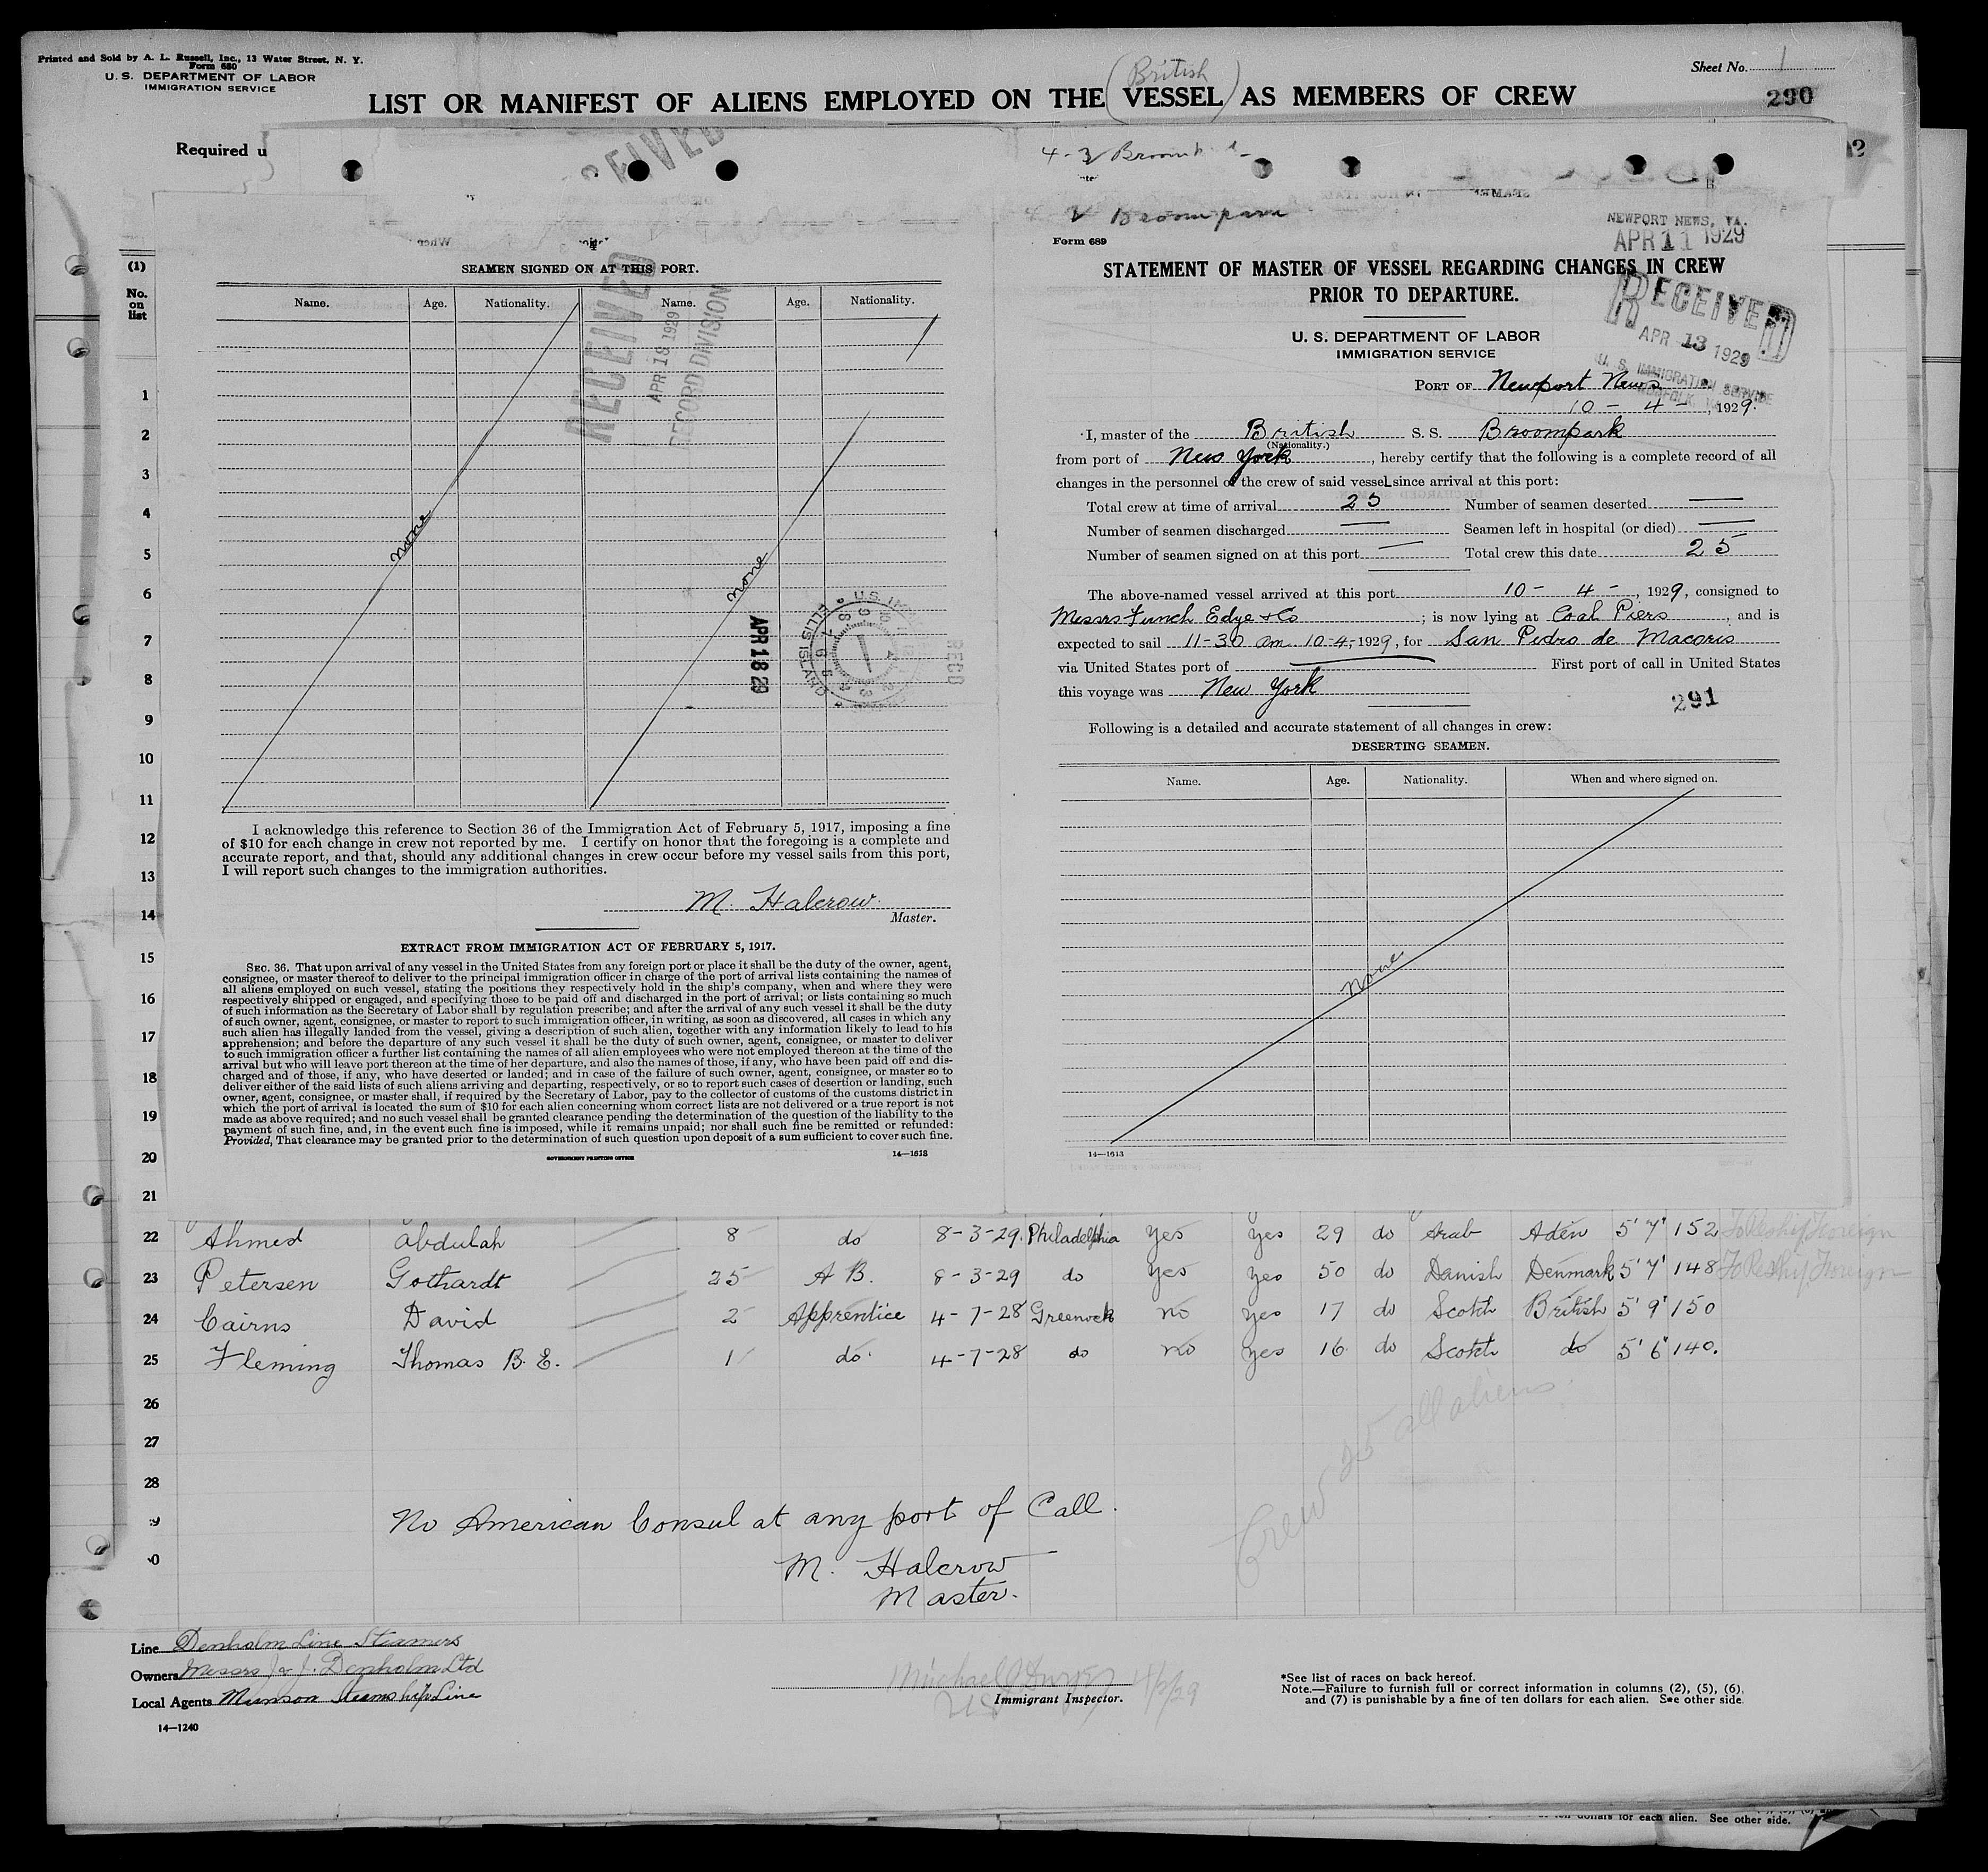 Printed and Sold by A. L. Russell, Inc., 13 Water Street, N. Y.
Form 680
U. S. DEPARTMENT OF LABOR
IMMIGRATION SERVICE
Sheet No. 1
(British)
LIST OR MANIFEST OF ALIENS EMPLOYED ON THE VESSEL AS MEMBERS OF CREW
290
Required u
(1)
No.
on
list
1
2
3
4
5
6
7
8
9
10
11
12
13
14
15
16
17
18
19
20
21
4
SEAMEN SIGNED ON AT THIS PORT.
Name. Age. Nationality. Name. Age. Nationality.
none
none
RECEIVED
APR 18 1929
RECORD DIVISION
APR 18 29
I acknowledge this reference to Section 36 of the Immigration Act of February 5, 1917, imposing a fine
of $10 for each change in crew not reported by me. I certify on honor that the foregoing is a complete and
accurate report, and that, should any additional changes in crew occur before my vessel sails from this port,
I will report such changes to the immigration authorities.
M. Halcrow.
Master.
EXTRACT FROM IMMIGRATION ACT OF FEBRUARY 5, 1917.
SEC. 36. That upon arrival of any vessel in the United States from any foreign port or place it shall be the duty of the owner, agent,
consignee, or master thereof to deliver to the principal immigration officer in charge of the port of arrival lists containing the names of
all aliens employed on such vessel, stating the positions they respectively hold in the ship's company, when and where they were
respectively shipped or engaged, and specifying those to be paid off and discharged in the port of arrival; or lists containing so much
of such information as the Secretary of Labor shall by regulation prescribe; and after the arrival of any such vessel it shall be the duty
of such owner, agent, consignee, or master to report to such immigration officer, in writing, as soon as discovered, all cases in which any
such alien has illegally landed from the vessel, giving a description of such alien, together with any information likely to lead to his
apprehension; and before the departure of any such vessel it shall be the duty of such owner, agent, consignee, or master to deliver
to such immigration officer a further list containing the names of all alien employees who were not employed thereon at the time of the
arrival but who will leave port thereon at the time of her departure, and also the names of those, if any, who have been paid off and dis-
charged and of those, if any, who have deserted or landed; and in case of the failure of such owner, agent, consignee, or master so to
deliver either of the said lists of such aliens arriving and departing, respectively, or so to report such cases of desertion or landing, such
owner, agent, consignee, or master shall, if required by the Secretary of Labor, pay to the collector of customs of the customs district in
which the port of arrival is located the sum of $10 for each alien concerning whom correct lists are not delivered or a true report is not
made as above required; and no such vessel shall be granted clearance pending the determination of the question of the liability to the
payment of such fine, and, in the event such fine is imposed, while it remains unpaid; nor shall such fine be remitted or refunded:
Provided, That clearance may be granted prior to the determination of such question upon deposit of a sum sufficient to cover such fine.
GOVERNMENT PRINTING OFFICE
14—1613
Broompark
Form 689
NEWPORT NEWS, VA.
APR 11 1929
STATEMENT OF MASTER OF VESSEL REGARDING CHANGES IN CREW
PRIOR TO DEPARTURE.
RECEIVED
APR 13 1929
U. S. IMMIGRATION SERVICE
NORFOLK, VA.
U. S. DEPARTMENT OF LABOR
IMMIGRATION SERVICE
PORT OF Newport News
10 - 4 - , 1929.
I, master of the British S. S. Broompark
(Nationality.)
from port of New York, hereby certify that the following is a complete record of all
changes in the personnel of the crew of said vessel since arrival at this port:
Total crew at time of arrival 25 Number of seamen deserted —
Number of seamen discharged — Seamen left in hospital (or died) —
Number of seamen signed on at this port — Total crew this date 25
The above-named vessel arrived at this port 10 - 4 - , 1929, consigned to
Messrs Funch Edye & Co; is now lying at Coal Piers, and is
expected to sail 11-30 am 10-4-, 1929, for San Pedro de Macoris
via United States port of — First port of call in United States
this voyage was New York
291
Following is a detailed and accurate statement of all changes in crew:
DESERTING SEAMEN.
Name. Age. Nationality. When and where signed on.
None
14—1613
22 Ahmed Abdulah 8 do 8-3-29. Philadelphia Yes Yes 29 do Arab Aden 5' 7" 152 To Reship Foreign
23 Petersen Gothardt 25 A B. 8-3-29 do Yes Yes 50 do Danish Denmark 5' 7" 148 To Reship Foreign
24 Cairns David 2 Apprentice 4-7-28 Greenock no Yes 17 do Scotch British 5' 9" 150
25 Fleming Thomas B. E. 1 do. 4-7-28 do no Yes 16 do Scotch do 5' 6" 140.
26
27
28
Crew 25 all aliens.
No American Consul at any port of Call.
M. Halcrow
Master.
Line Denholm Line Steamers
Owners Messrs J & J. Denholm Ltd
Local Agents Munson Steamship Line
14—1240
Immigrant Inspector.
*See list of races on back hereof.
Note.—Failure to furnish full or correct information in columns (2), (5), (6),
and (7) is punishable by a fine of ten dollars for each alien. See other side.
dollars for each alien. See other side.